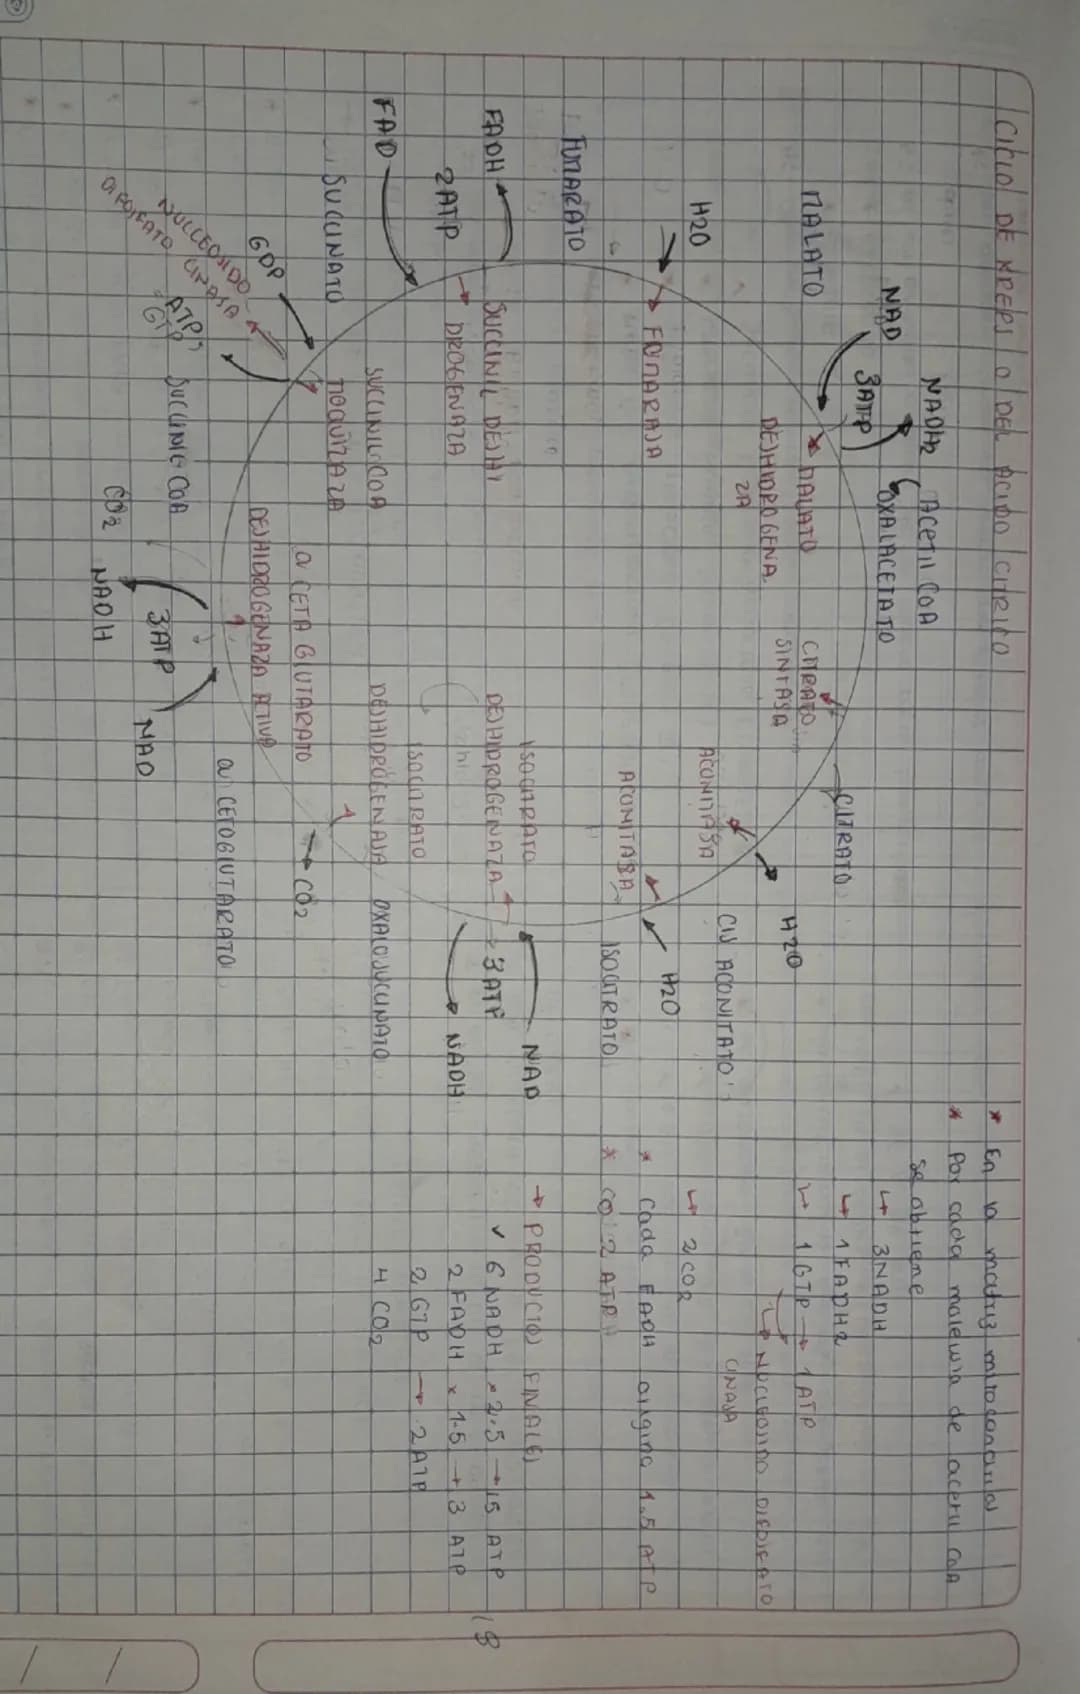 CICLO DE KREPS O DEL ACIDO CITRICO
NADH2
ACETIL COA
NAD
3ATP
OXALACETATO
MALATO
MALATO
DESHIDROGENA.
ZA
CITRATO
SINTASA
CITRATO
H2O
FUMARASA
ACONITASA
H2O
CIS ACONITATO
FUMARATO
ACONITASA
H2O
ISOCITRATO
FADH
2ATP
SUCCINIL DESHI
DROGENAZA
ISOCITRATO
DESHIDROGENAZA
3ATP
NAD
NADH
FAD
SUCCINATO
SUCCINIL COA
TIOQUITAZA
ISOCITRATO
DESHIDROGENASA
OXALOSUCCINATO
GDP
NUCLEOSIDO
DIFOSFATO CINASA
ATP
GTP
α CETA GLUTARATO
DESHIDROGENAZA ACTIVA
CO2
α CETOGLUTARATO
SUCCINIL COA
CO2
NADH
3ATP
NAD
* En la matriz mitocondrial
* Por cada molecula de acetil CoA
se obtiene
↳ 3NADH
↳ 1FADH2
↳ 1GTP → 1ATP
↳ NUCLEOSIDO DIFOSFATO
CINASA
↳ 2CO2
* Cada FADH origina 1.5 ATP
* CO 2 ATP
→ PRODUCTOS FINALES
✓ 6 NADH × 2.5 → 15 ATP
2 FADH × 1.5 → 3 ATP
18
2 GTP → 2ATP
4 CO2